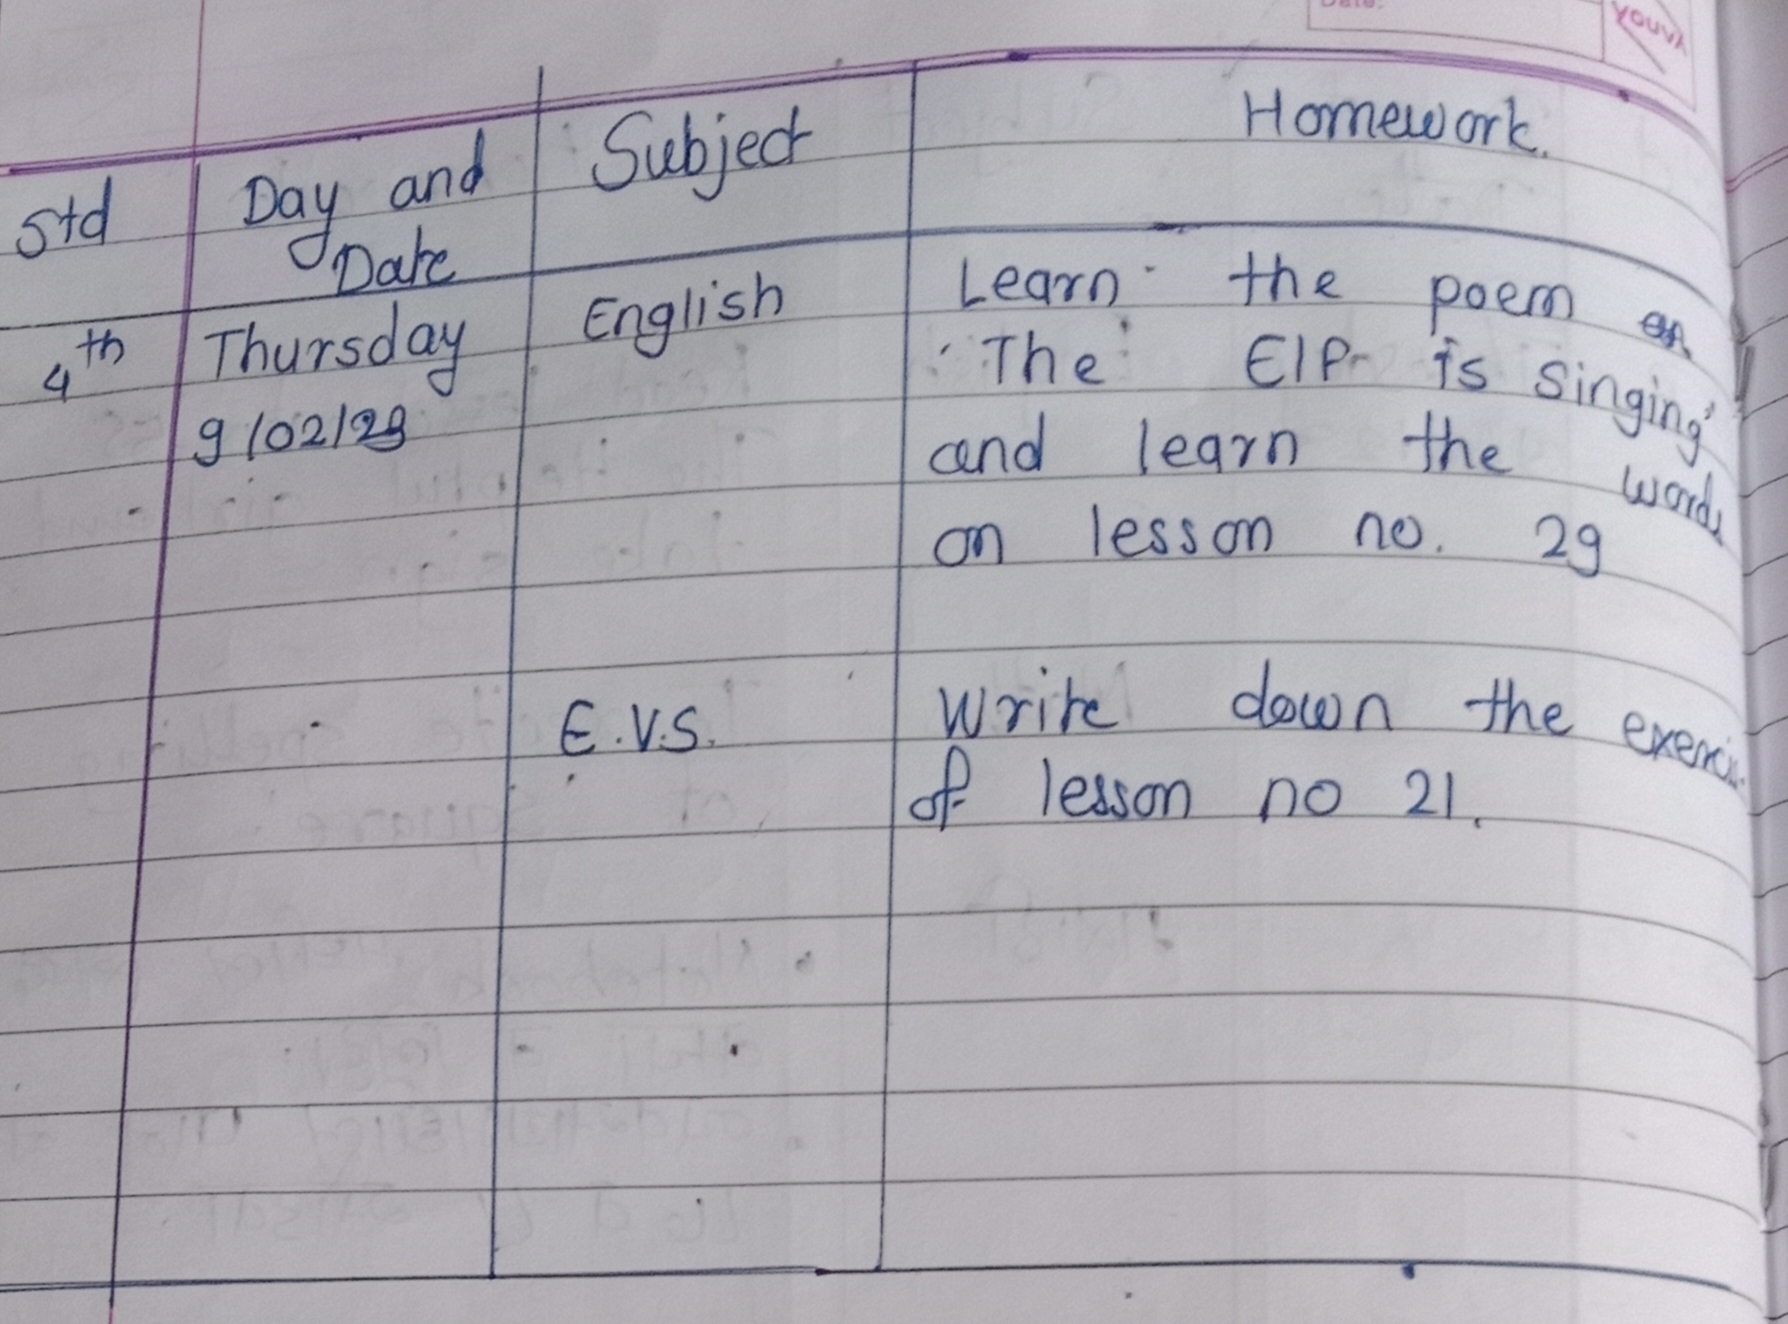 Date:
YOUVA
Std
Day and
Date
Subject
Homework.
4th
Thursday
9/02/23
English
Learn the poem on
'The Elf is singing'
and learn the words
on lesson no. 29
E.V.S.
Write down the
of lesson no 21.